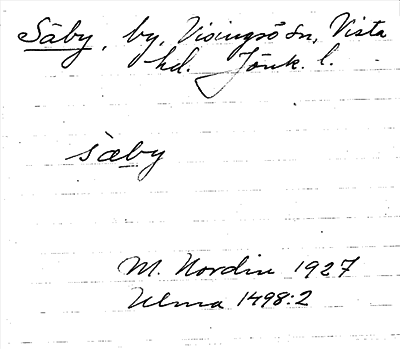 Säby, by, Visingsö sn, Vista
hd. Jönk. l.
sæby
M. Nordin 1927
Ulma 1498:2